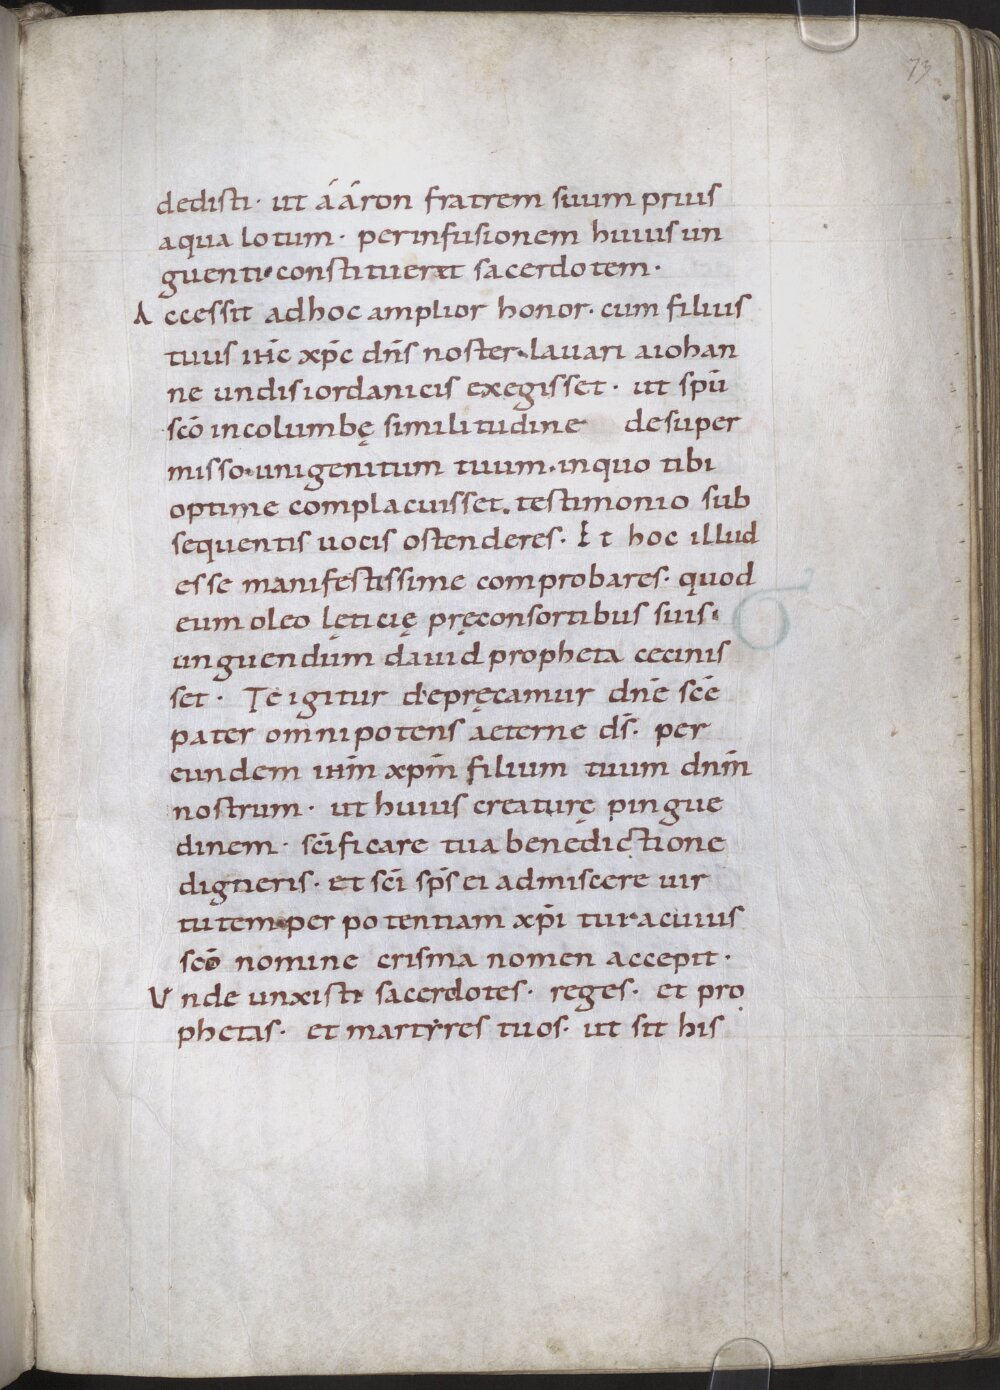 73
dedisti· ut ááron fratrem suum prius
aqua lotum· per infusionem huius un
guenti· constitueret sacerdotem·
Accessit ad hoc amplior honor· cum filius
tuus ihc̄ xpc̄ dn̄s noster· lauari a iohan
ne undis iordanicis exegisset· ut spū
scō in columbę similitudine desuper
misso· unigenitum tuum· in quo tibi
optime complacuisset· testimonio sub
sequentis uocis ostenderes· Et hoc illud
esse manifestissime comprobares· quod
eum oleo lęticię pręconsortibus suis·
unguendum dauid propheta cecinis
set· Te igitur depręcamur dn̄e scē
pater omnipotens aeterne ds̄· per
eundem ihm̄ xpm̄ filium tuum dnm̄
nostrum· ut huius creaturę pingue
dinem· scīficare tua benedictione
digneris· et scī sps̄ ei admiscere uir
tutem· per potentiam xpī tui· a cuius
scō nomine crisma nomen accepit·
Unde unxisti sacerdotes· reges· et pro
phetas· et martyres tuos· ut sit his